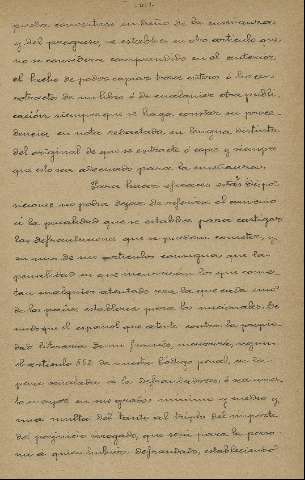 pueda convertirse en daño de la enseñanza
y del progreso, se establece en otro artículo que
no se considera comprendido en el anterior
el hecho de poder copiar trozo entero ó hacer
extracto de un libro ó de cualquier otra publi
cación siempre que se haga constar su proce-
dencia en nota redactada en lengua distinta
del original de que se extracte ó copie y siempre
que ello sea adecuado para la enseñanza.
Para hacer eficaces estas dispo
siciones no podía dejar de
á la penalidad que se establece para castigar
las defraudaciones que se puedan cometer, y
en uno de sus artículos consigna que la
penalidad en que incurrirán los que come
tan cualquier atentado sea la que cada uno
de los paises establezca para los nacionales. De
modo que el español que atente contra la propie
dad literaria de un francés, incurrirá, según
el artículo 552 de nuestro Código penal, en la
pena señalada á los defraudadores, ó sea arres
to mayor en sus grados mínimo y medio y
una multa del tanto al triplo del importe
del perjuicio irrogado, que será para la perso
na á quien hubiere defraudado, estableciendo